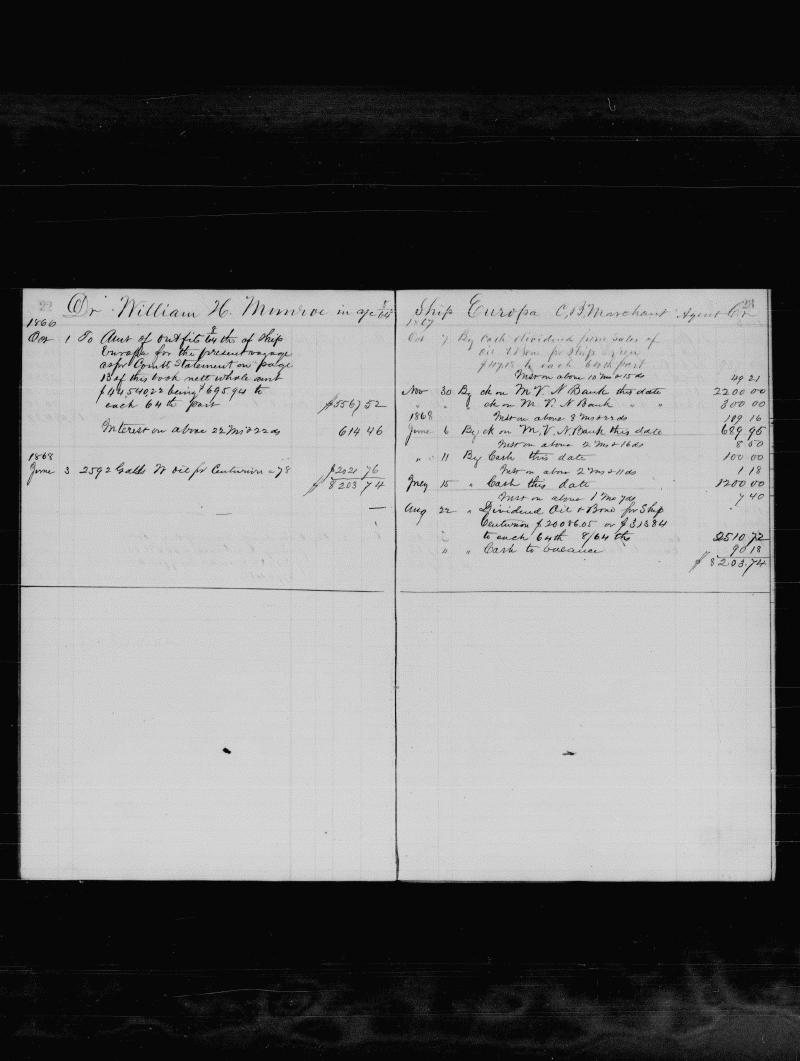 22 Dr William H. Munroe in a/c 8/64
1866
Oct 1 To Amt of outfits 8/64 ths of Ship
Europa for the present voyage
as pr Comtt Statement on page
13 of this book nett whole amt
$44540.22 being $695.94 to
each 64 th part $5567 52
Interest on above 22 Ms & 22 ds 614 46
1868
June 3 2592 Galls W oil pr Centurion @ 78 $2021 76
$8203 74
Ship Europa C, B, Marchant Agent Cr 23
1867
Oct 7 By Cash dividend from Sales of
oil & Bone pr Ship
to each 64th part
Inst on above 10 Ms & 15 ds 49 21
Nov 30 By ck on M. V. N Bank this date 2200 00
" " " ck on M. V. N Bank " " 800 00
1868 Inst on above 8 Ms & 22 ds 189 16
June 6 By ck on M, V. N. Bank this date 689 95
Inst on above 2 Ms & 16 ds 8 50
" 11 By Cash this date 100 00
Inst on above 2 Ms & 11 ds 1 18
July 15 " Cash this date 1200 00
Inst on above 1 Mo 7 ds 7 40
Aug 22 " Dividend Oil & Bone for Ship
Centurion $20086.05 or $313 84
to each 64th 8/64 ths 2510 72
" " Cash to balance 90 18
$8203.74